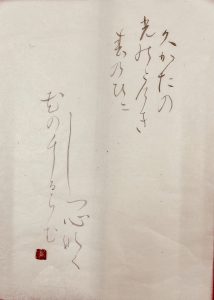 久かたの
光のとけき
春乃日に
しつ心なく
花のちるらむ